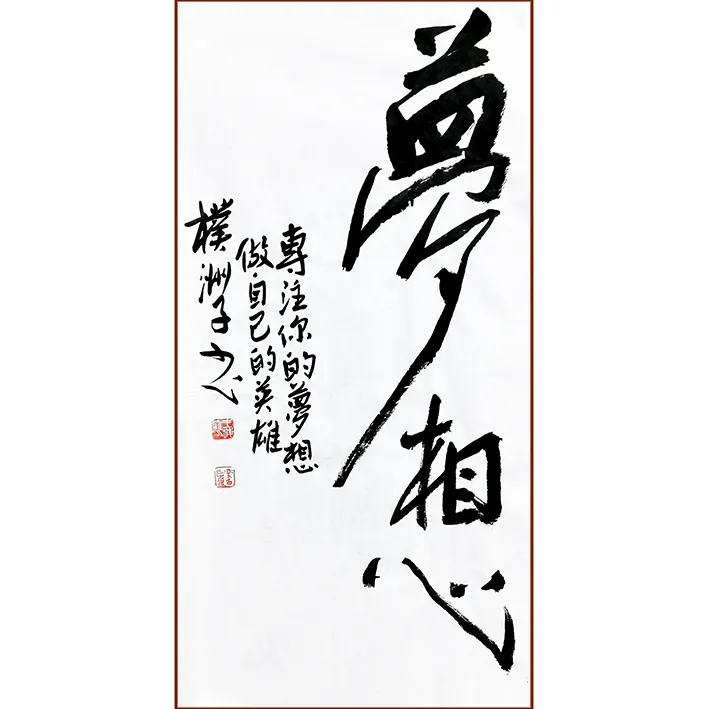 夢想
專注你的夢想
做自己的英雄
樸洲子书